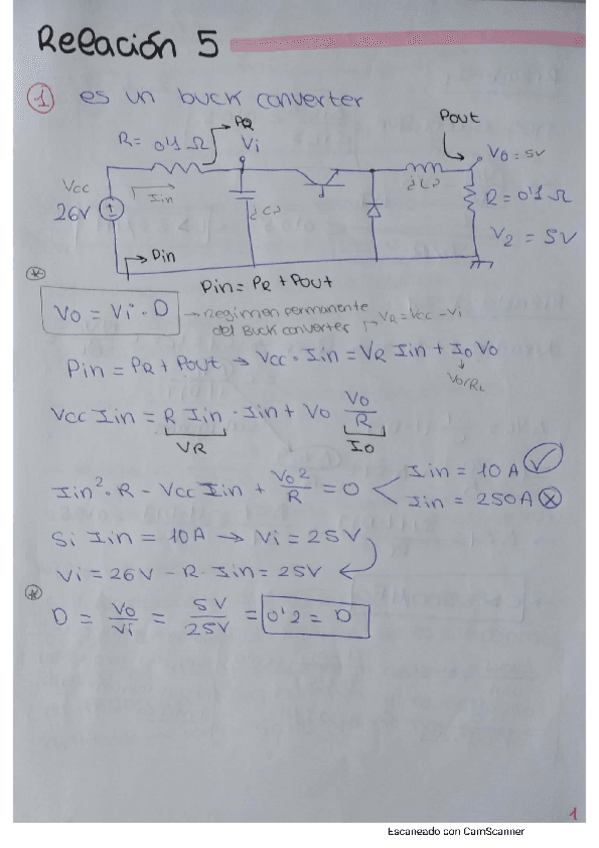 Relación 5
① es un buck converter
R = 0'1 Ω
PR
Vi
Pout
V0 = 5V
Vcc
26V
Iin
¿C?
¿L?
R = 0'1 Ω
V2 = 5V
Pin
Pin = PR + Pout
*
V0 = Vi · D → Regimen permanente del Buck converter
VR = Vcc - Vi
Pin = PR + Pout → Vcc · Iin = VR Iin + I0 V0
V0/RL
Vcc Iin = R Iin · Iin + V0 V0/R
VR
I0
Iin² · R - Vcc Iin + V0²/R = 0
Iin = 10 A ✓
Iin = 250 A ⊗
Si Iin = 10A → Vi = 25V
Vi = 26V - R · Iin = 25V
*
D = V0/Vi = 5V/25V = 0'2 = D
1
Escaneado con CamScanner